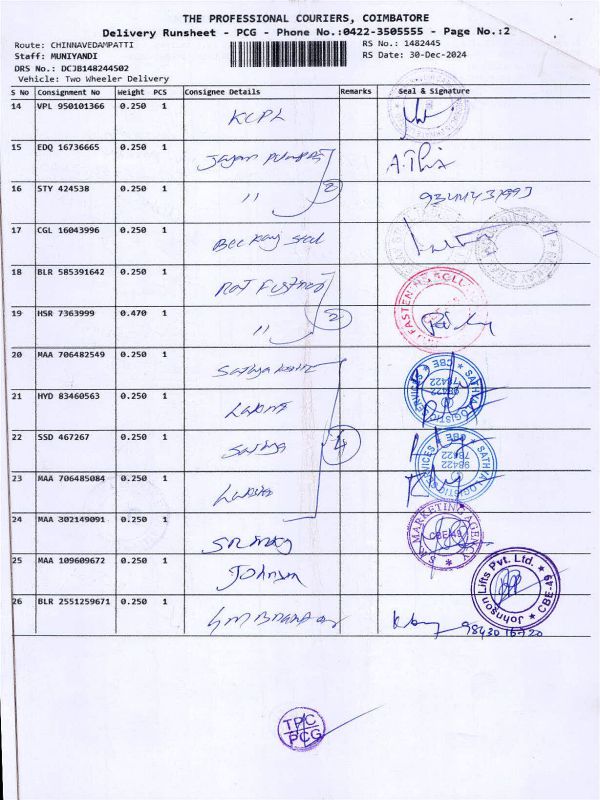 THE PROFESSIONAL COURIERS, COIMBATORE
Delivery Runsheet - PCG - Phone No.:0422-3505555 - Page No.:2
Route: CHINNAVEDAMPATTI
RS No.: 1482445
Staff: MUNIYANDI
RS Date: 30-Dec-2024
DRS No.: DCJB148244502
Vehicle: Two Wheeler Delivery
S No Consignment No Weight PCS Consignee Details Remarks Seal & Signature
14 VPL 950101366 0.250 1 KCPL
15 EDQ 16736665 0.250 1
16 STY 424538 0.250 1 11 2
17 CGL 16043996 0.250 1
18 BLR 585391642 0.250 1
19 HSR 7363999 0.470 1 11 2
20 MAA 706482549 0.250 1 SATHYA LOGISTIC SERVICES CBE 98422
21 HYD 83460563 0.250 1
22 SSD 467267 0.250 1 4 SATHYA LOGISTIC SERVICES CBE 98422
23 MAA 706485084 0.250 1
24 MAA 302149091 0.250 1 MARKETING AGENCY CBE-49
25 MAA 109609672 0.250 1 Johnson Johnson Lifts Pvt. Ltd. CBE-49
26 BLR 2551259671 0.250 1
TPC
PCG